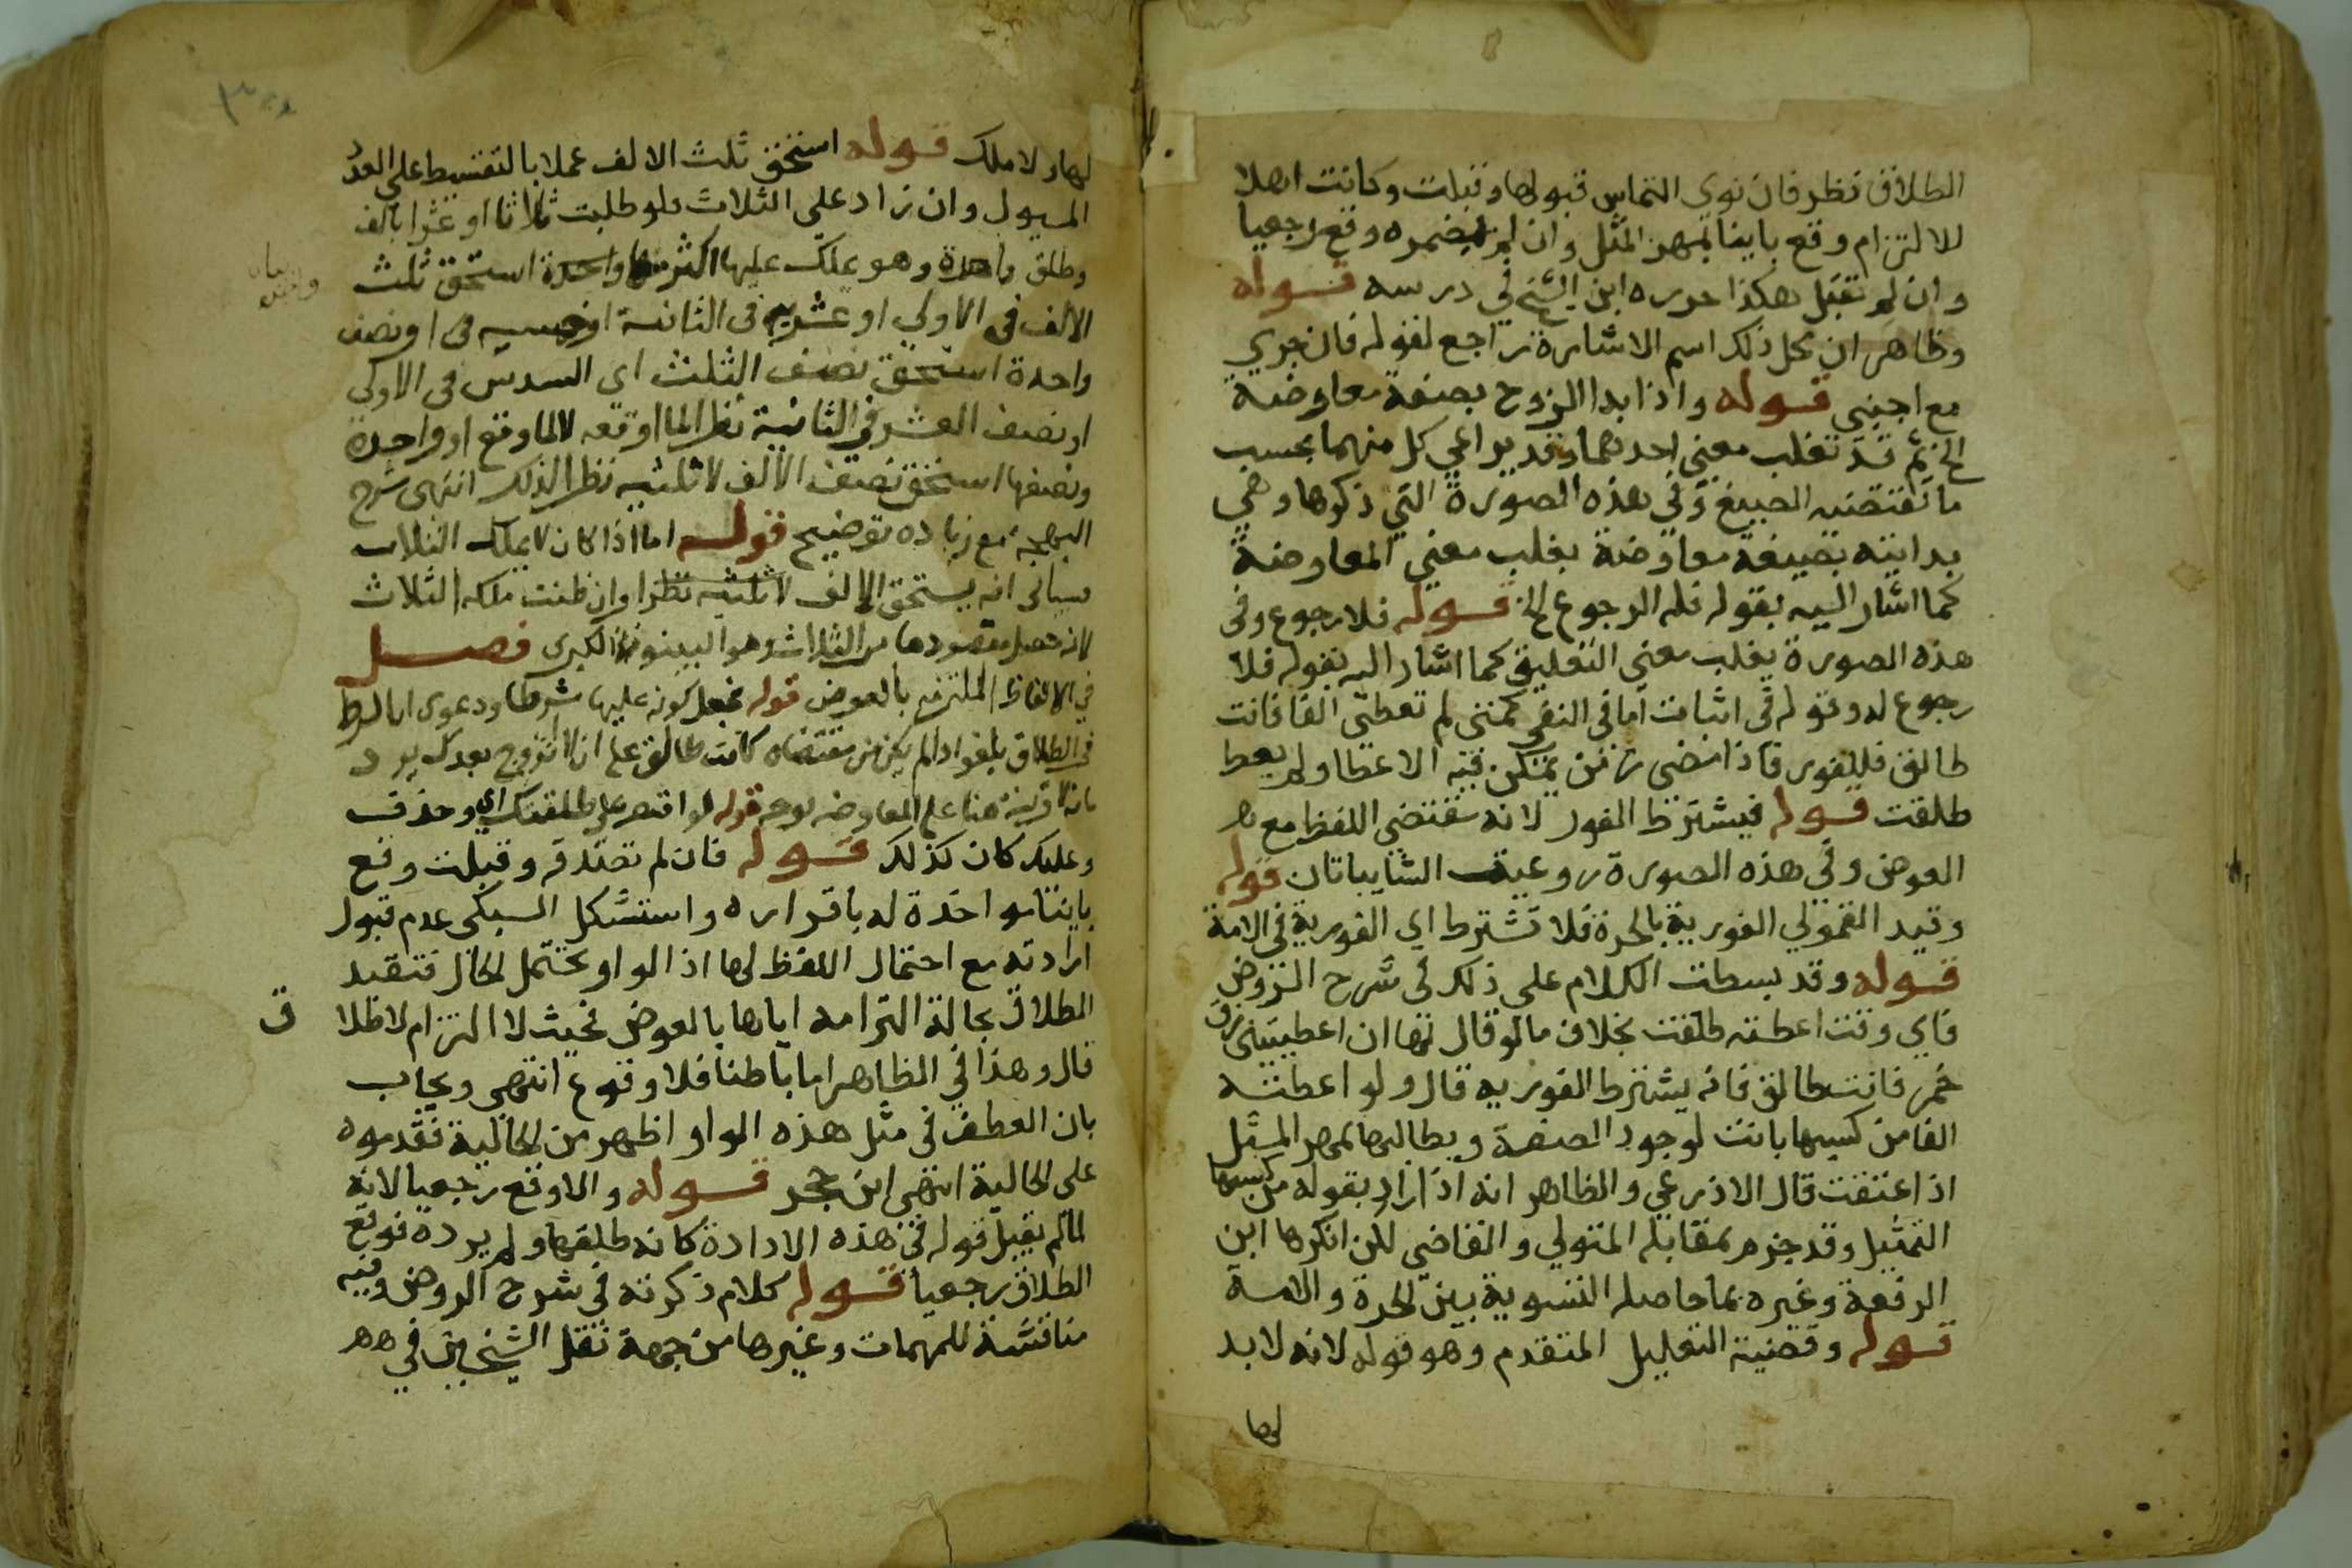 الطلاق نظر فان نوي التماس قبولها وقبلت وكانت اهلا
للالتزام وقع باينا بمهر المثل وان لم يضمره وقع رجعيا
وان لم تقبل هكذا حرره ابن الشيخ في درسه قوله
وظاهر ان محل ذلك اسم الاشارة راجع لقوله فان جري
مع اجنبي قوله واذا بدا الزوج بصيغة معاوضة
الخ ثم قد تغلب معني احدهما وقد يراعي كل منهما بحسب
ما تقتضيه الصيغ وفي هذه الصورة التي ذكرها وهي
بدايته بصيغة معاوضة يغلب معني المعاوضة
كما اشار اليه بقوله فله الرجوع الخ قوله فلا رجوع وفي
هذه الصورة يغلب معني التعليق كما اشار اليه بقوله فلا
رجوع له وقوله في اثبات اما في النفي كمتي لم تعطني الفا فانت
طالق فللفور فاذا مضي زمن يمكن فيه الاعطا ولم يعط
طلقت قوله فيشترط الفور لانه مقتضي اللفظ مع
العوض وفي هذه الصورة روعيت الشايبتان قوله
وقيد القمولي الفورية بالحرة فلا تشترط اي الفورية في الامة
قوله وقد بسطت الكلام علي ذلك في شرح الروض
فاي وقت اعطته طلقت بخلاف ما لو قال لها ان اعطيتني زق
خمر فانت طالق فانه يشترط الفورية قال ولو اعطته
الفا من كسبها بانت لوجود الصفة ويطالبها بمهر المثل
اذا عتقت قال الاذرعي والظاهر انه اذا اراد بقوله من كسبها
التمثيل وقد جزم بمقابله المتولي والقاضي لكن انكرها ابن
الرفعة وغيره بما حاصله التسوية بين الحرة والامة
قوله وقضية التعليل المتقدم وهو قوله لانه لا يد
لها
لها ولا ملك قوله استحق ثلث الالف عملا بالتقسيط علي العدد
المسيول وان زاد علي الثلاث فلو طلبت ثلاثا او عشرا بالف
وطلق واحدة وهو يملك عليها اكثر منها واحدة استحق ثلث
الالف في الاولي او عشره في الثانية او
واحدة استحق نصف الثلث اي السدس في الاولي
او نصف العشر في الثانية نظرا لما اوقعه لا لما وقع او واحدة
ونصفها استحق نصف الالف لا ثلثيه نظرا لذلك انتهي شرح
البهجة مع زيادة توضيح قوله اما اذا كان لا يملك الثلاث
فسياتي انه يستحق الالف لا ثلثيه نظرا وان ظنت ملكه الثلاث
لانه حصل مقصودها من الثلاث وهو البينونة الكبري فصل
في الالفاظ الملتزم بالعوض قوله بجعل كونه عليها شرطا ودعوي ان الشرط
في الطلاق يلغو اذا لم يكن من مقتضاه كانت طالق علي ان لا اتزوج بعدك يرد
بانه لا قرينة هنا علي المعاوضة بوجه قوله لو اقتصر علي طلقتك اي وحذف
وعليك كان كذلك قوله فان لم تصدقه وقبلت وقع
باينا مواخذة له باقراره واستشكل السبكي عدم قبول
ارادته مع احتمال اللفظ لها اذ الواو تحتمل الحال فتقيد
الطلاق بحالة التزامه اياها بالعوض فحيث لا التزام لا طلا ق
قال وهذا في الظاهر اما باطنا فلا وقوع انتهي ويجاب
بان العطف في مثل هذه الواو اظهر من الحالية فقدموه
علي الحالية انتهي ابن حجر قوله والا وقع رجعيا لانه
لما لم يقبل قوله في هذه الارادة كانه طلقها ولم يرده فوقع
الطلاق رجعيا قوله كلام ذكرته في شرح الروض وفيه
مناقشة للمهمات وغيرها من جهة نقل الشيخين في هه